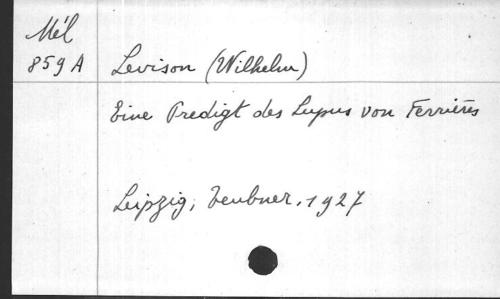 Mél
859 A Levison (Wilhelm)
Eine Predigt des Lupus von Ferrières
Leipzig, Teubner, 1927